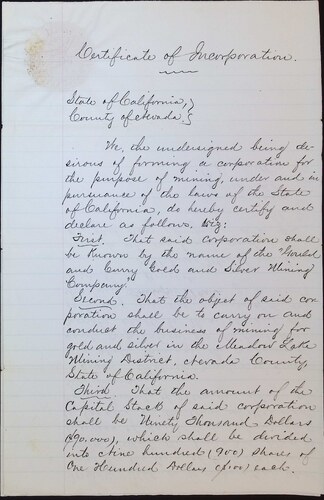 Certificate of Incorporation.
State of California, }
County of Nevada. }
We, the undersigned being de-
sirous of forming a corporation for
the purpose of mining, under and in
pursuance of the laws of the State
of California, do hereby certify and
declare as follows. viz:
First. That said corporation shall
be known by the name of the "Gould
and Curry Gold and Silver Mining
Company.
Second. That the object of said cor
poration shall be to carry on and
conduct the business of mining for
gold and silver in the Meadow Lake
Mining District, Nevada County,
State of California.
Third. That the amount of the
Capital Stock of said corporation
shall be Ninety Thousand Dollars
($90.000), which shall be divided
into Nine hundred (900) shares of
One Hundred Dollars ($100) each.